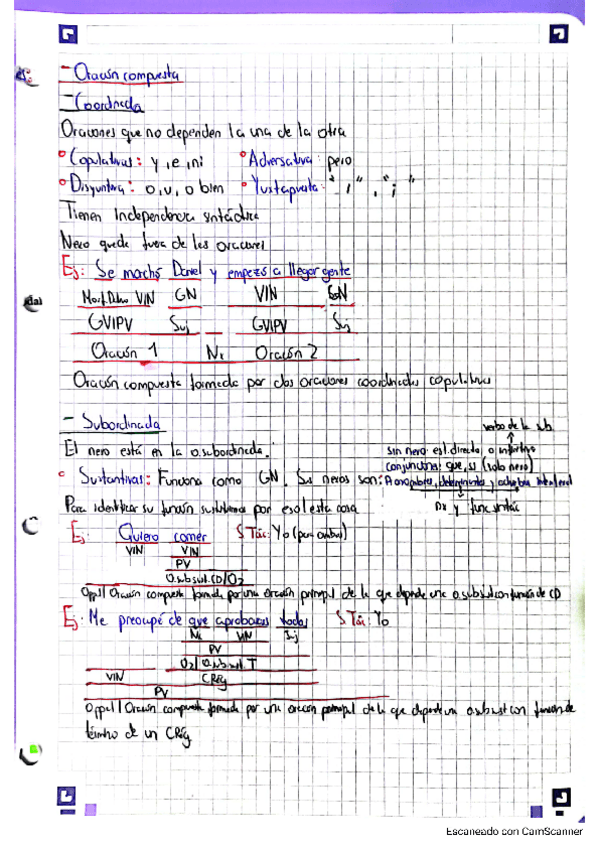 - Oración compuesta
- Coordinada
Oraciones que no dependen la una de la otra
° Copulativas: y, e, ni ° Adversativa: pero
° Disyuntiva: o, u, o bien ° Yuxtapuesta: " , " . " ; "
Tienen independencia sintáctica
Nexo queda fuera de las oraciones
Ej: Se marchó Daniel y empezó a llegar gente
VIN GN VIN GN
GV/PV Suj GV/PV Suj
Oración 1 Nx Oración 2
Oración compuesta formada por dos oraciones coordinadas copulativas
- Subordinada
verbo de la sub.
El nexo está en la o.subordinada.
sin nexo: est.directo, o infinitivo
conjunciones: que, si (solo nexo)
° Sustantivas: Funciona como GN. Sus nexos son:
Nx y func.sintác
Para identificar su función sustituimos por eso/esta cosa
Ej: Quiero comer STác: Yo (para ambas)
VIN VIN
PV
O.sub.sust.CD/O2
Op.pal/Oración compuesta formada por una oración principal de la que depende una o.subsust con función de CD
Ej: Me preocupé de que aprobaras todas STác: Yo
Nx VIN
PV
O2/O.sub.sust.T
VIN CRég
PV
Oppal/Oración compuesta formada por una oración principal de la que depende una o.subsust con función de
término de un CRég
Escaneado con CamScanner